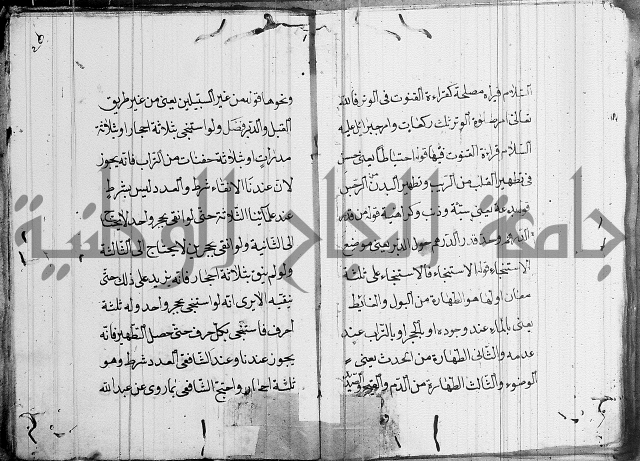 السلام فيراه مصلحة كقراءة القنوت في الوتر فالله
تعالى امر بثلث ركعات وامر جبرايل عليه
السلام قراءة القنوت فيها قوله احتياطا يعني حسن
في تطهير القلب من الريب وتطهير البدن
قدر الدرهم حول الدبر يعني موضع
الاستنجاء قوله الاستنجاء فالاستنجاء على ثلثة
معان اولها هو الطهارة من البول والغائط
يعني بالماء عند وجوده او بالحجر او بالتراب عند
عدمه والثاني الطهارة من الحدث يعني
الوضوء والثالث الطهارة من الدم والقيح والصديد
ونحوها قوله من غير السبيلين يعني من غير طريق
القبل والدبر فصل ولو استنجى بثلاثة احجار او ثلاثة
مدرات او ثلاثة حفنات من التراب فانه يجوز
لان عندنا الانقاء شرط والعدد ليس بشرط
عند علمائنا الثلاثة حتى لو انقى بحجر واحد لا يحتاج
الى الثانية ولو انقى بحجرين لا يحتاج الى الثالثة
ولو لم ينق بثلاثة احجار فانه يزيد على ذلك حتى
ينقيه الا يرى انه لو استنجى بحجر واحد وله ثلثة
احرف فاستنجى بكل حرف حتى حصل التطهير فانه
يجوز عندنا وعند الشافعي العدد شرط وهو
ثلثة احجار واحتج الشافعي بما روى عن عبد الله
جامعة النجاح الوطنية